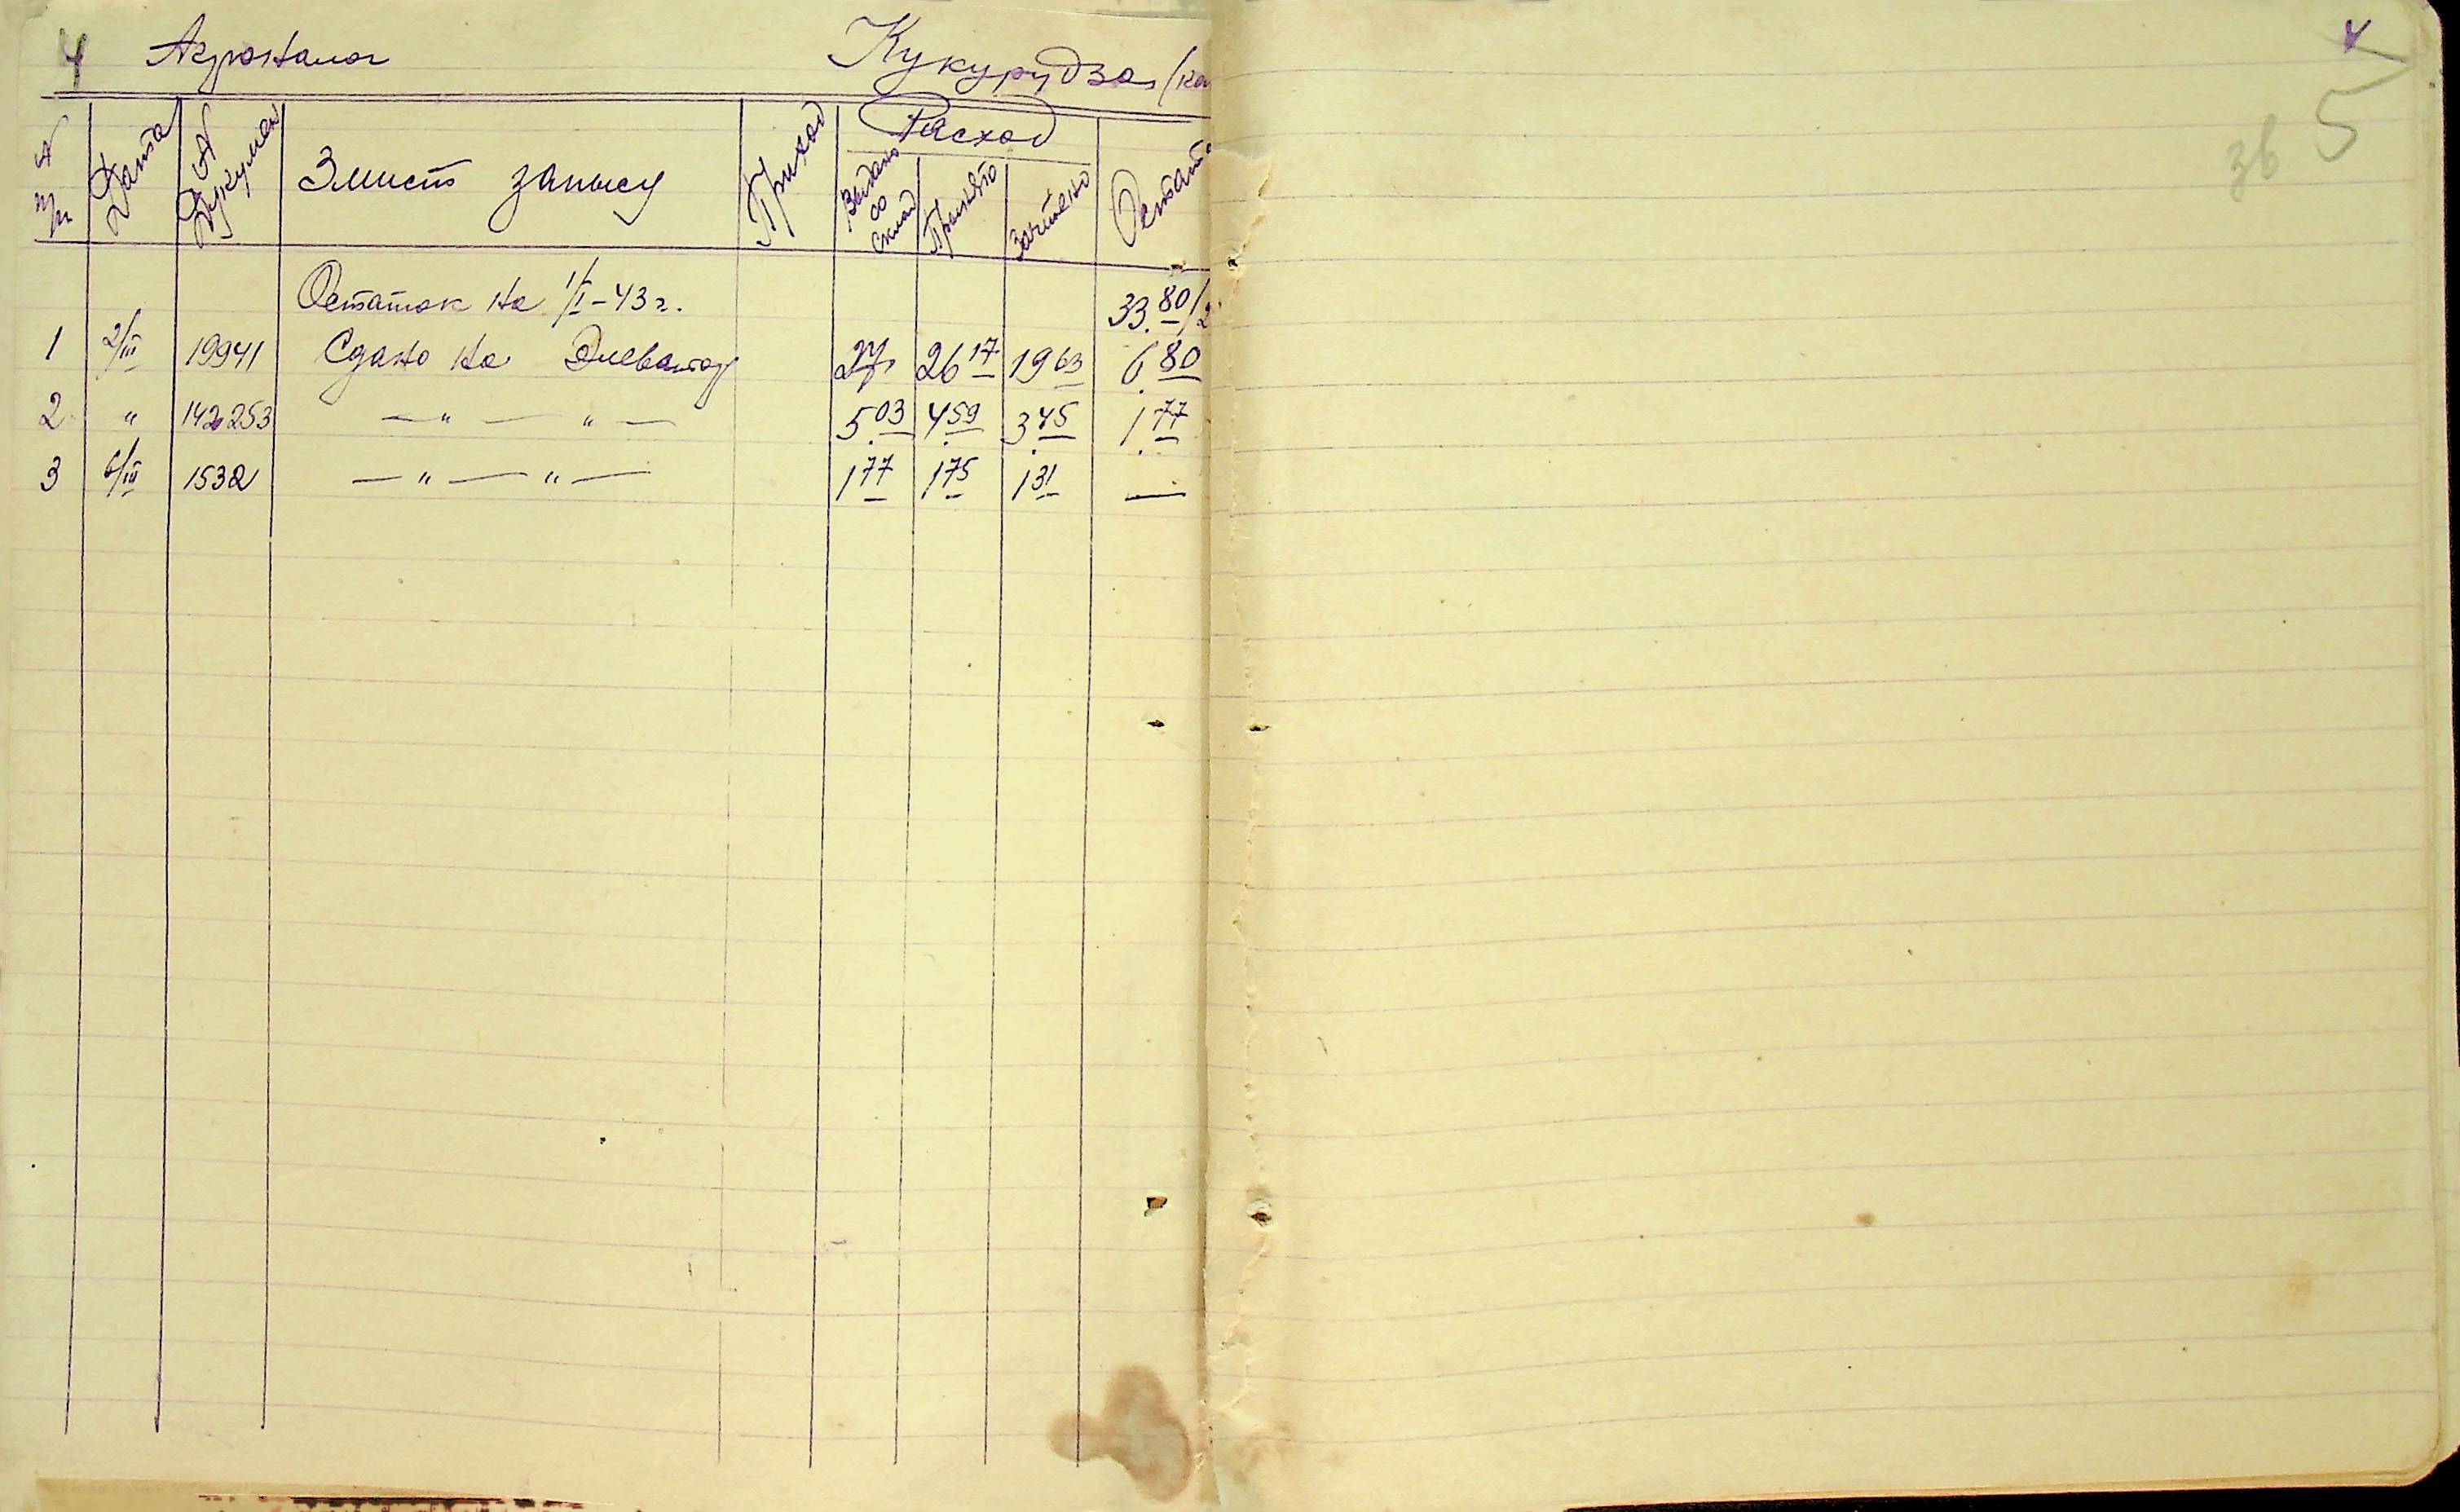 4 Агроналог Кукурудза (ка
№ п/п Дата № Докумен Змист запысу Приход Расход Остаток
Выдано со склад Принято Зачтено
Остаток на 1/I-43 г. 33.80/2
1 2/III 19941 Сдано на Элеватор 27, 26 17 19 63 6.80
2 " 142253 — " — " — 5.03 4.59 3.45 1.77
3 6/III 15321 — " — " — 1 77 1 75 1 31 —
4
зв 5